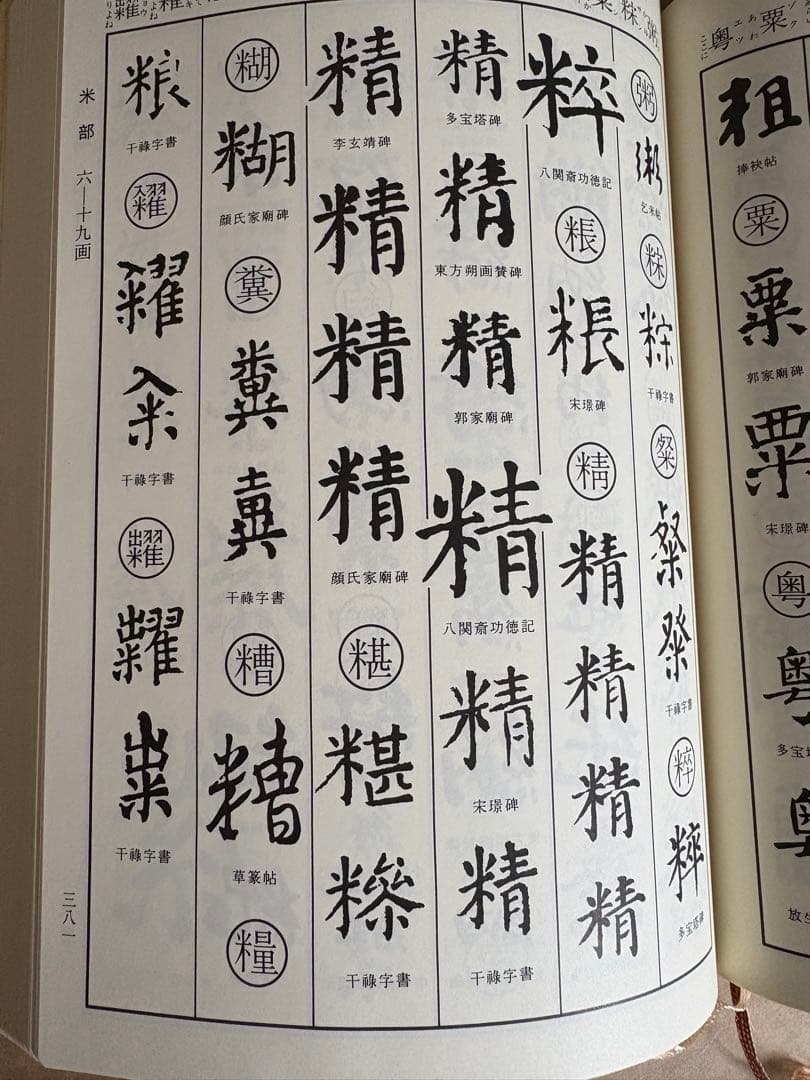 粟
粤
粗 捧袂帖 粟 粟 郭家廟碑 粟 宋璟碑 粤 粤 多宝塔 粤 放生
粥 粥 乞米帖 粽 干祿字書 粲 粲 粲 干祿字書 粹 粹 多宝塔碑
粹 八関斎功徳記 粻 粻 宋璟碑 精 精 精 精 精
精 多宝塔碑 精 東方朔画賛碑 精 郭家廟碑 精 八関斎功徳記 精 宋璟碑 精 干祿字書
精 李玄靖碑 精 精 精 顔氏家廟碑 糂 糂 糝 干祿字書
糊 糊 顔氏家廟碑 糞 糞 糞 干祿字書 糟 糟 草篆帖 糧
粮 干祿字書 糴 糴 籴 干祿字書 糶 糶 粜 干祿字書
米部 六―十九画
三八一